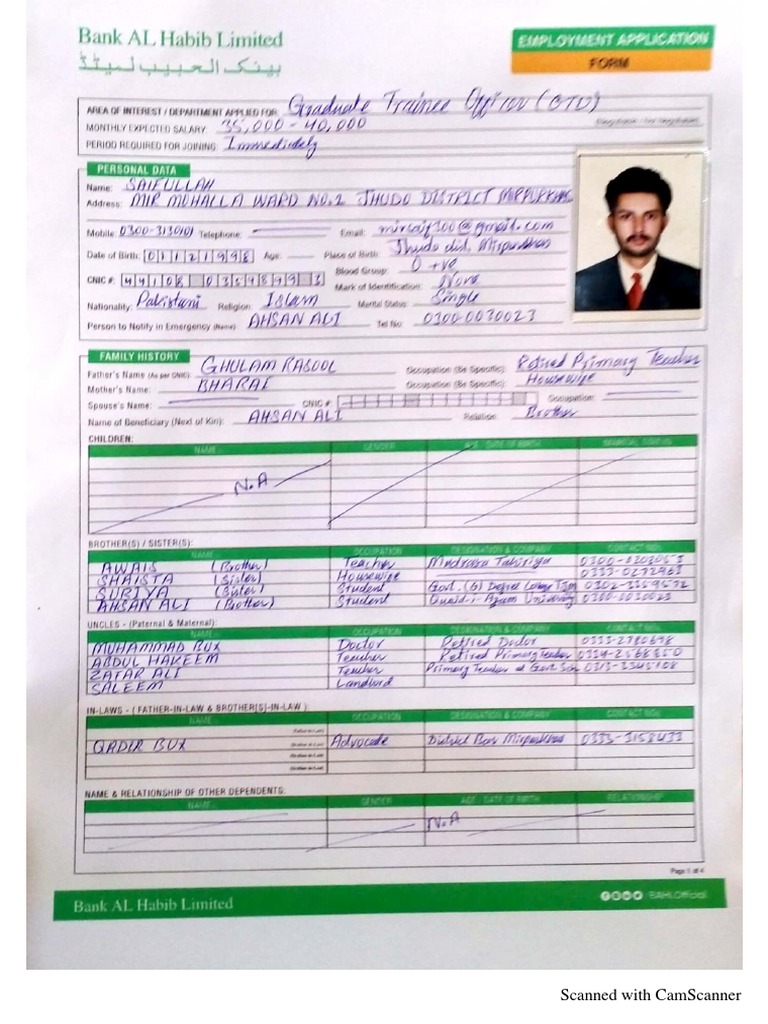 Bank AL Habib Limited
بینک الحبیب لمیٹڈ
EMPLOYMENT APPLICATION
FORM
AREA OF INTEREST / DEPARTMENT APPLIED FOR: Graduate Trainee Officer (GTO)
MONTHLY EXPECTED SALARY: 35,000 - 40,000
PERIOD REQUIRED FOR JOINING: Immediately
PERSONAL DATA
Name: SAIFULLAH
Address: MIR MUHALLA WARD NO.2 JHUDO DISTRICT MIRPURKHAS
Mobile: 0300-3130101 Telephone: Email: @gmail.com
Date of Birth: 01121998 Age: Place of Birth: Jhudo dist. Mirpurkhas
Blood Group: O +ve
CNIC #: Mark of Identification: None
Nationality: Pakistani Religion: Islam Marital Status: Single
Person to Notify in Emergency (Name) AHSAN ALI Tel No: 0300-0030023
FAMILY HISTORY
Father's Name (As per CNIC): GHULAM RASOOL Occupation (Be Specific): Retired Primary Teacher
Mother's Name: BHARAI Occupation (Be Specific): Housewife
Spouse's Name: CNIC #: Occupation:
Name of Beneficiary (Next of Kin): AHSAN ALI Relation: Brother
CHILDREN:
NAME GENDER AGE / DATE OF BIRTH MARITAL STATUS
N.A
BROTHER(S) / SISTER(S):
NAME OCCUPATION DESIGNATION & COMPANY CONTACT NO.
AWAIS (Brother) Teacher Madrasa
SHAISTA (Sister) Housewife 0333-0272963
SURIYA (Sister) Student Govt. (G) Degree
AHSAN ALI (Brother) Student Quaid-i-Azam University 0300-0030023
UNCLES - (Paternal & Maternal):
NAME OCCUPATION DESIGNATION & COMPANY CONTACT NO.
MUHAMMAD BUX Doctor Retired Doctor 0333-2780698
ABDUL HAKEEM Teacher Retired Primary Teacher
ZAFAR ALI Teacher Primary Teacher at Govt.
SALEEM Landlord
IN-LAWS - ( FATHER-IN-LAW & BROTHER[S]-IN-LAW ):
NAME OCCUPATION DESIGNATION & COMPANY CONTACT NO.
QADIR BUX Advocate District Bar Mirpurkhas 0333-3158433
NAME & RELATIONSHIP OF OTHER DEPENDENTS:
NAME GENDER AGE / DATE OF BIRTH RELATIONSHIP
N.A
Page 1 of 4
Bank AL Habib Limited
BAHLOfficial
Scanned with CamScanner